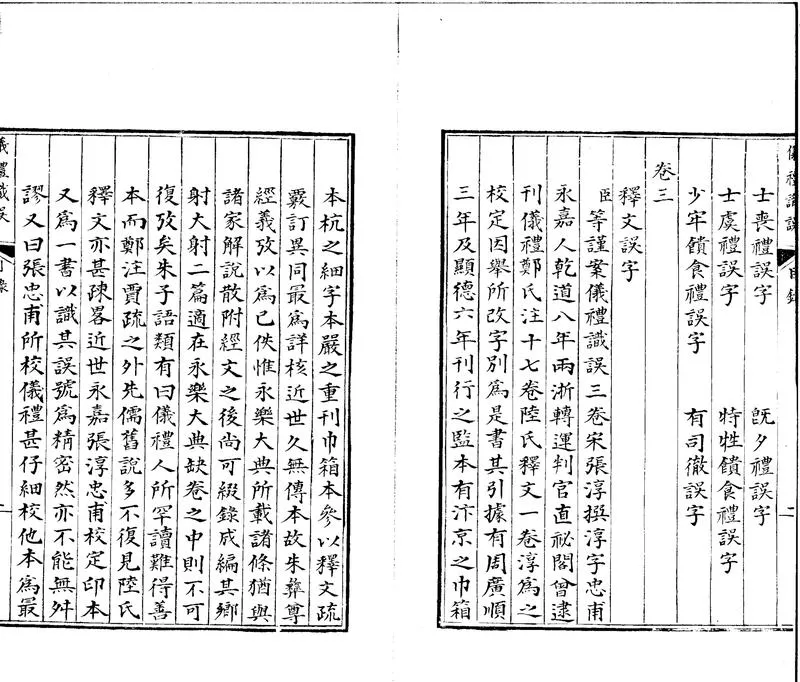 儀禮識誤 目錄 二
士喪禮誤字 旣夕禮誤字
士虞禮誤字 特牲饋食禮誤字
少牢饋食禮誤字 有司徹誤字
卷三
釋文誤字
臣等謹案儀禮識誤三卷宋張淳撰淳字忠甫
永嘉人乾道八年兩浙轉運判官直祕閣曾逮
刊儀禮鄭氏注十七卷陸氏釋文一卷淳爲之
校定因舉所改字別爲是書其引據有周廣順
三年及顯德六年刊行之監本有汴京之巾箱
本杭之細字本嚴之重刊巾箱本參以釋文疏
覈訂異同最爲詳核近世久無傳本故朱彝尊
經義攷以爲已佚惟永樂大典所載諸條猶與
諸家解說散附經文之後尚可綴錄成編其鄉
射大射二篇適在永樂大典缺卷之中則不可
復攷矣朱子語類有曰儀禮人所罕讀難得善
本而鄭注賈疏之外先儒舊說多不復見陸氏
釋文亦甚疎畧近世永嘉張淳忠甫校定印本
又爲一書以識其誤號爲精密然亦不能無舛
謬又曰張忠甫所校儀禮甚仔細校他本爲最
儀禮識誤